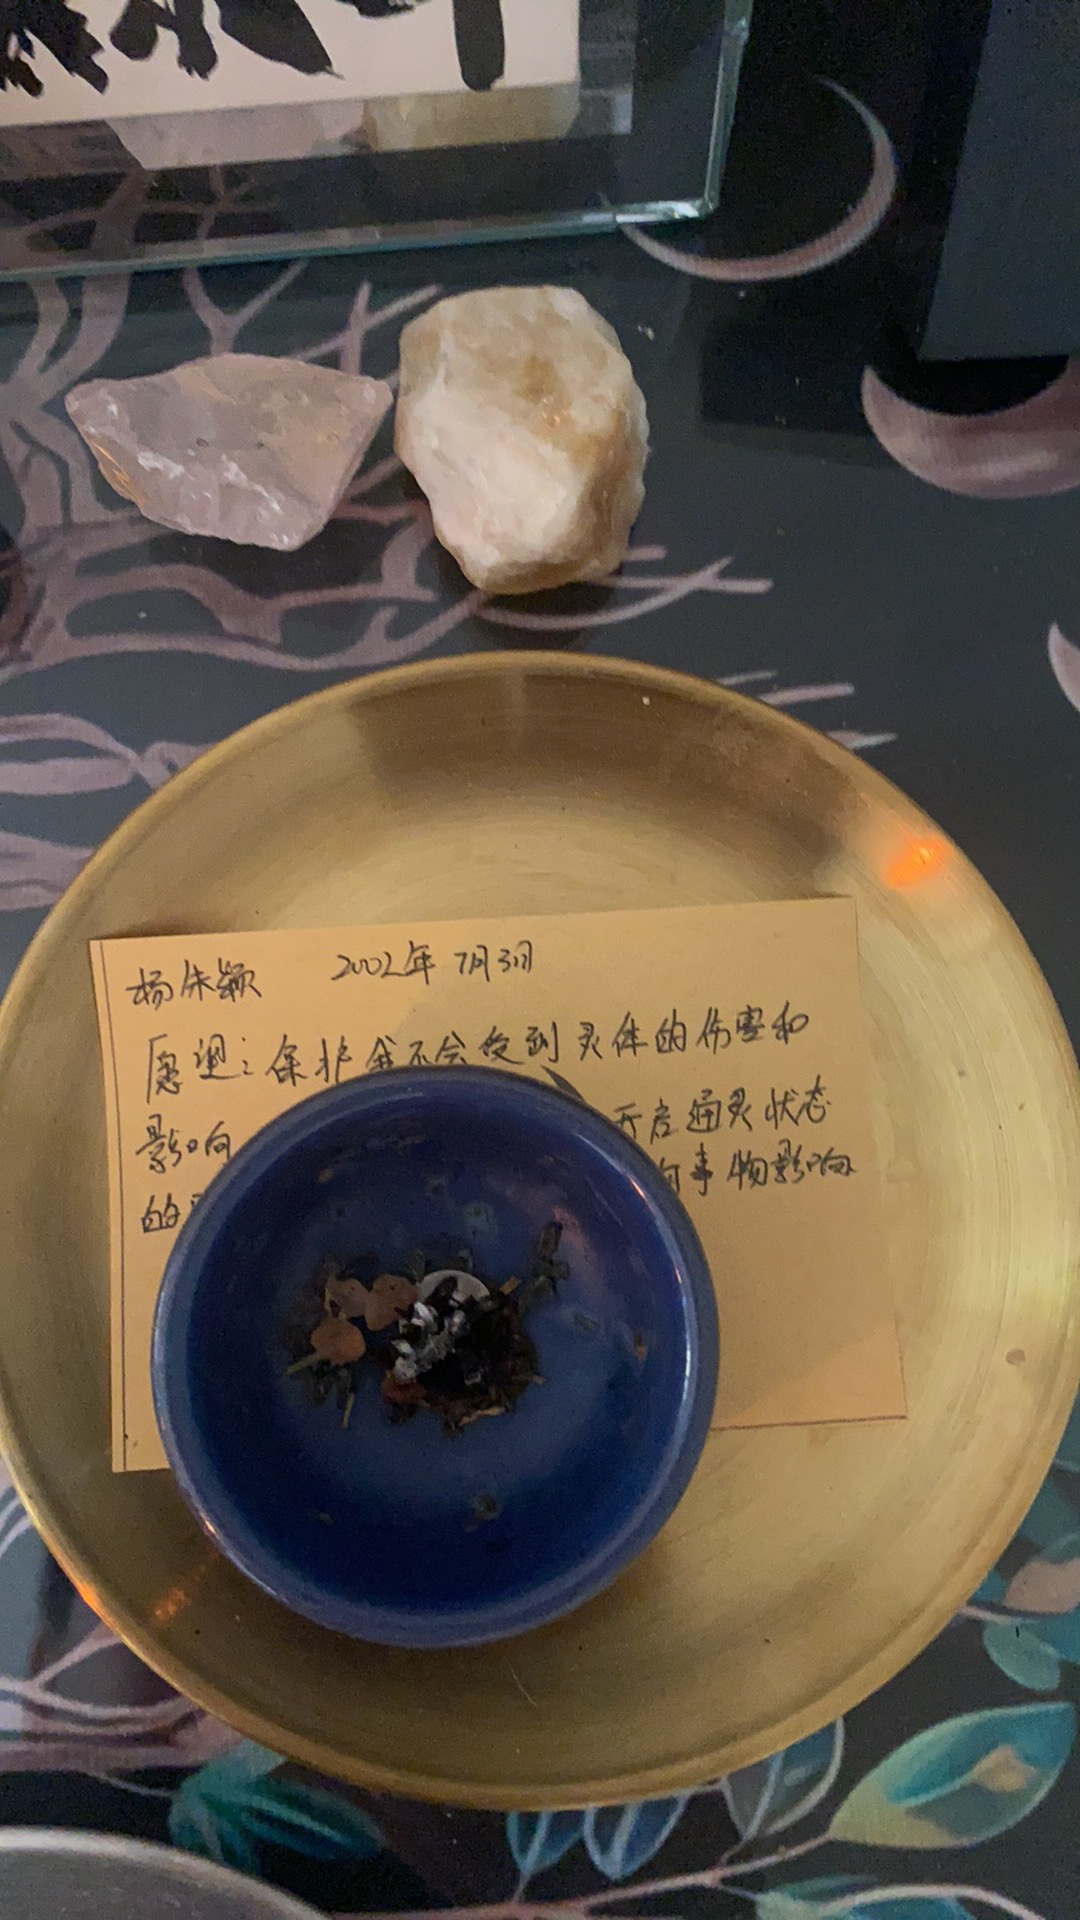 杨朱颖 2002年7月3日
愿望：保护我不会受到灵体的伤害和
影响 开启通灵状态
的 事物影响